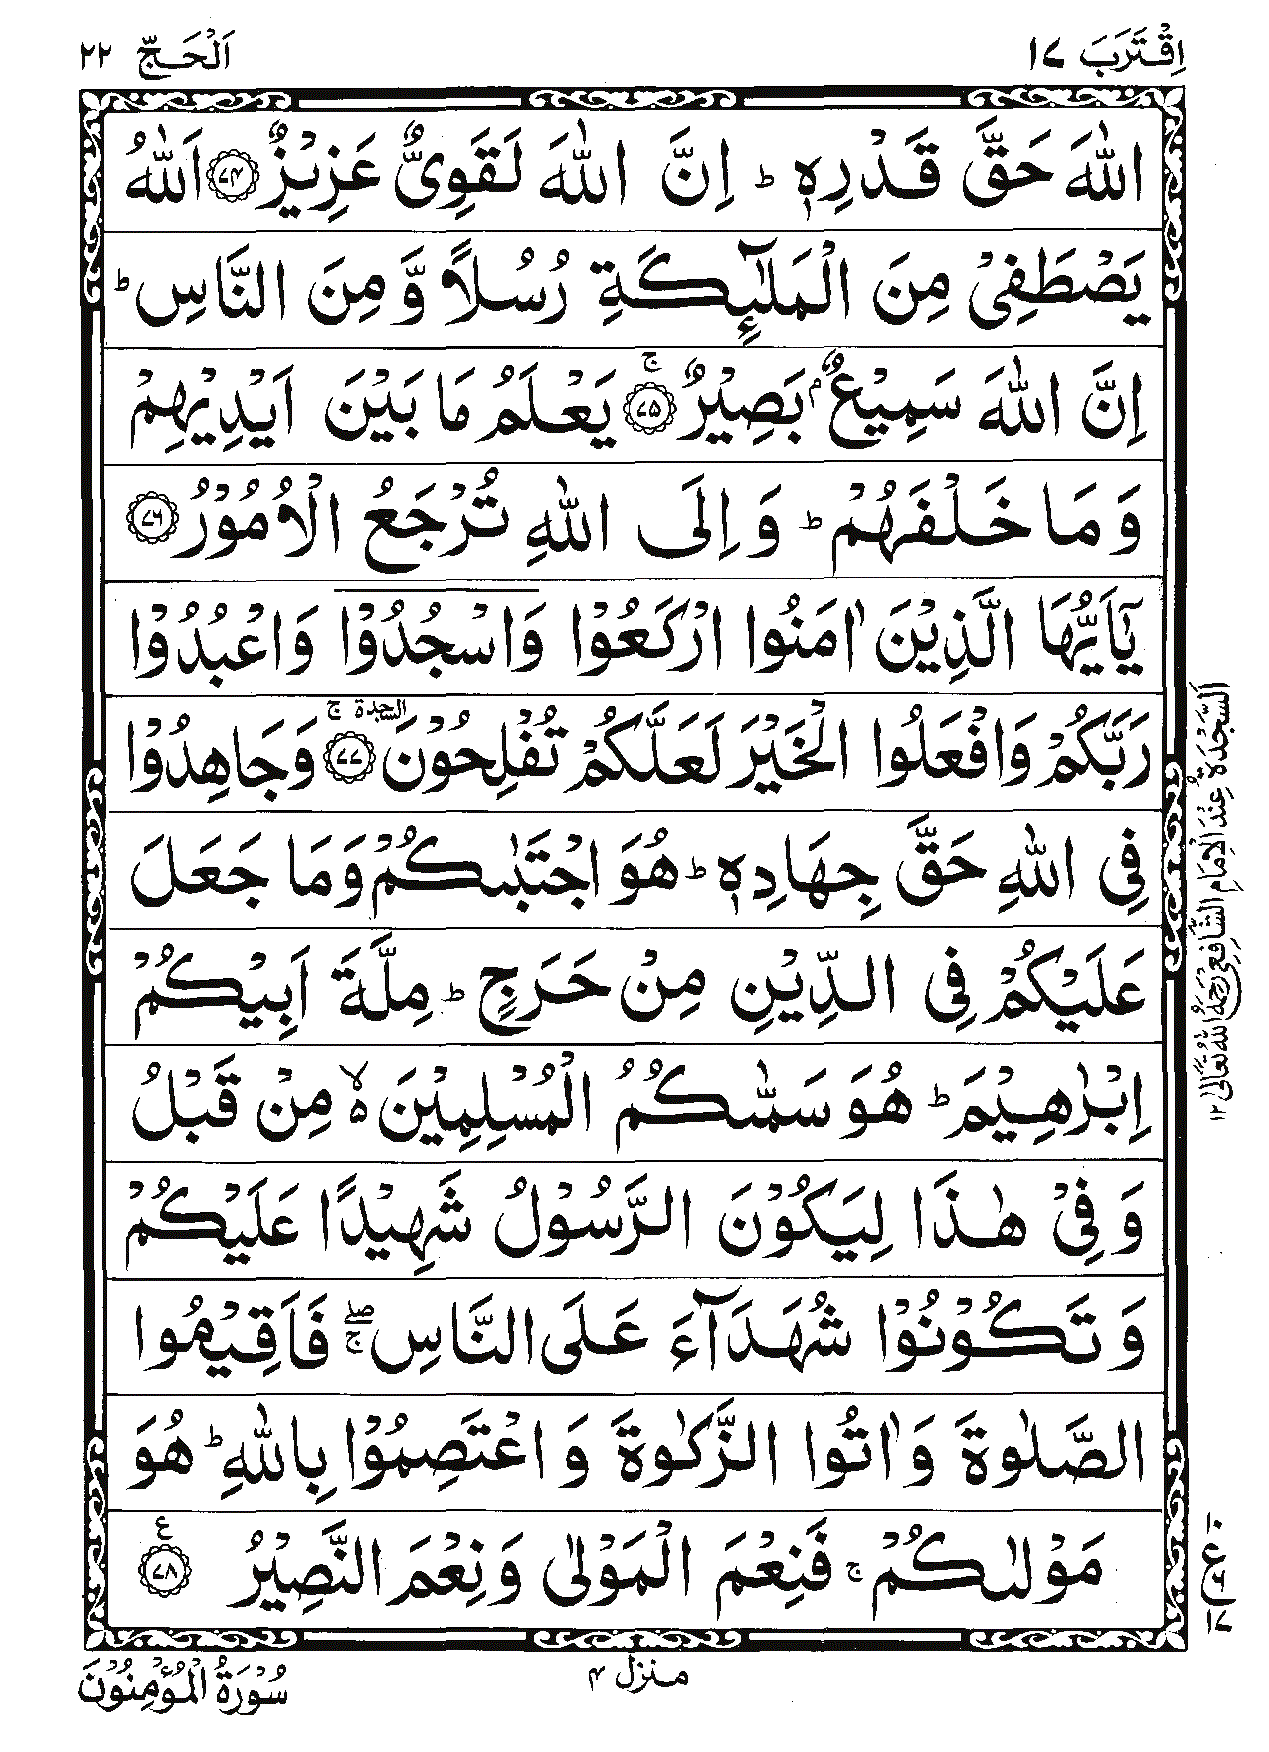 اِقْتَرَبَ ١٧
اَلْحَجّ ٢٢
اللّٰهَ حَقَّ قَدْرِهٖ ؕ اِنَّ اللّٰهَ لَقَوِیٌّ عَزِیْزٌ ﴿۷۴﴾ اَللّٰهُ
یَصْطَفِیْ مِنَ الْمَلٰٓئِكَةِ رُسُلًا وَّ مِنَ النَّاسِ ؕ
اِنَّ اللّٰهَ سَمِیْعٌۢ بَصِیْرٌ ﴿۷۵﴾ۚ یَعْلَمُ مَا بَیْنَ اَیْدِیْهِمْ
وَ مَا خَلْفَهُمْ ؕ وَ اِلَی اللّٰهِ تُرْجَعُ الْاُمُوْرُ ﴿۷۶﴾
یٰۤاَیُّهَا الَّذِیْنَ اٰمَنُوا ارْكَعُوْا وَاسْجُدُوْا وَاعْبُدُوْا
رَبَّكُمْ وَافْعَلُوا الْخَیْرَ لَعَلَّكُمْ تُفْلِحُوْنَ ﴿۷۷﴾ السجدة ۚ وَجَاهِدُوْا
فِی اللّٰهِ حَقَّ جِهَادِهٖ ؕ هُوَ اجْتَبٰىكُمْ وَمَا جَعَلَ
عَلَیْكُمْ فِی الدِّیْنِ مِنْ حَرَجٍ ؕ مِلَّةَ اَبِیْكُمْ
اِبْرٰهِیْمَ ؕ هُوَ سَمّٰىكُمُ الْمُسْلِمِیْنَ ۙ۬ مِنْ قَبْلُ
وَ فِیْ هٰذَا لِیَكُوْنَ الرَّسُوْلُ شَهِیْدًا عَلَیْكُمْ
وَ تَكُوْنُوْا شُهَدَآءَ عَلَی النَّاسِ ۖۚ فَاَقِیْمُوا
الصَّلٰوةَ وَ اٰتُوا الزَّكٰوةَ وَ اعْتَصِمُوْا بِاللّٰهِ ؕ هُوَ
مَوْلٰىكُمْ ۚ فَنِعْمَ الْمَوْلٰی وَ نِعْمَ النَّصِیْرُ ﴿۷۸﴾ ع
اَلسَّجْدَةُ عِنْدَ الْاِمَامِ الشَّافِعِیِّ رَحِمَهُ اللّٰهُ تَعَالٰی ١٢
١٠
ع
١٧
منزل ۴
سُوْرَةُ الْمُؤْمِنُوْنَ